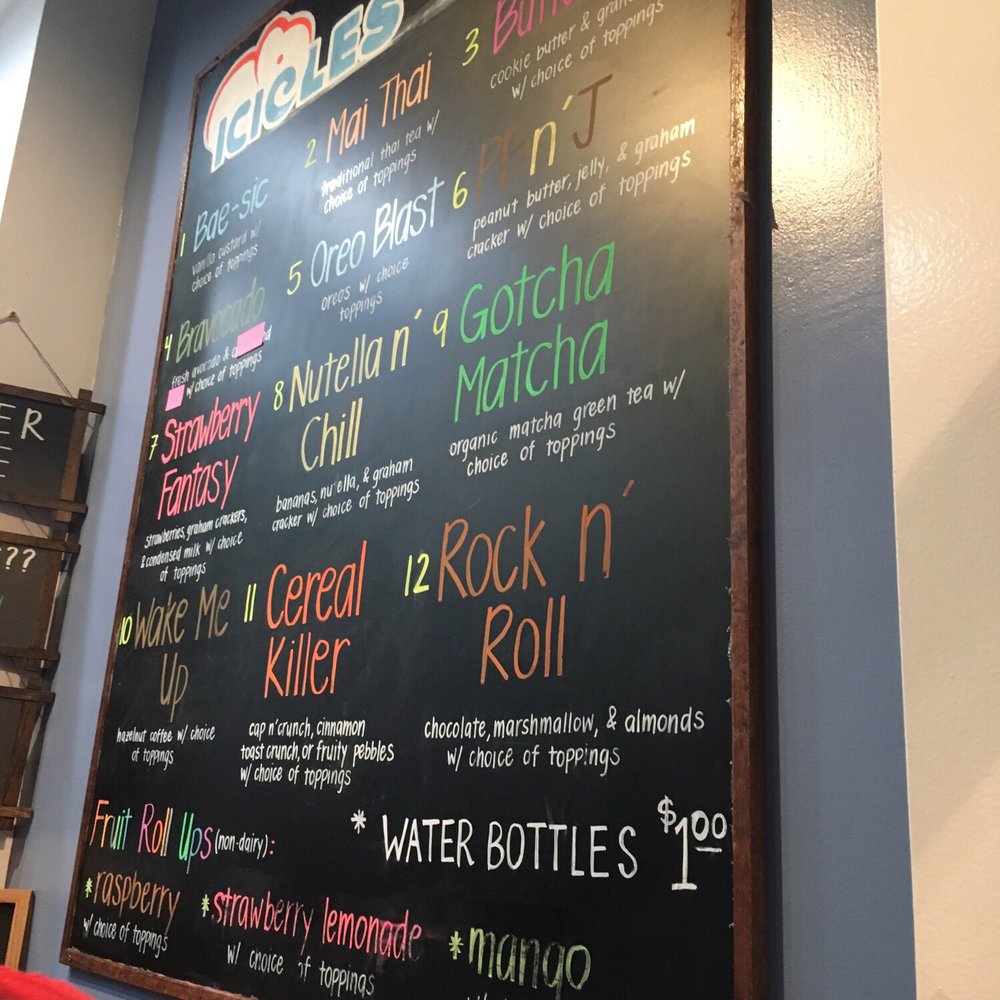 ICICLES
1 Bae-sic
vanilla custard w/
choice of toppings
2 Mai Thai
traditional thai tea w/
choice of toppings
3
cookie butter & graham
w/ choice of toppings
4 Bravocado
fresh avocado &
w/ choice of toppings
5 Oreo Blast
oreos w/ choice
toppings
6 n' J
peanut butter, jelly, & graham
cracker w/ choice of toppings
7 Strawberry
Fantasy
strawberries, graham crackers,
& condensed milk w/ choice
of toppings
8 Nutella n'
Chill
bananas, nutella, & graham
cracker w/ choice of toppings
9 Gotcha
Matcha
organic matcha green tea w/
choice of toppings
10 Wake Me
Up
hazelnut coffee w/ choice
of toppings
11 Cereal
Killer
cap n' crunch, cinnamon
toast crunch, or fruity pebbles
w/ choice of toppings
12 Rock n'
Roll
chocolate, marshmallow, & almonds
w/ choice of toppings
Fruit Roll Ups (non-dairy):
* WATER BOTTLES $1.00
*raspberry
w/ choice of toppings
*strawberry lemonade
w/ choice of toppings
*mango
w/ choice of toppings
ER
E
???